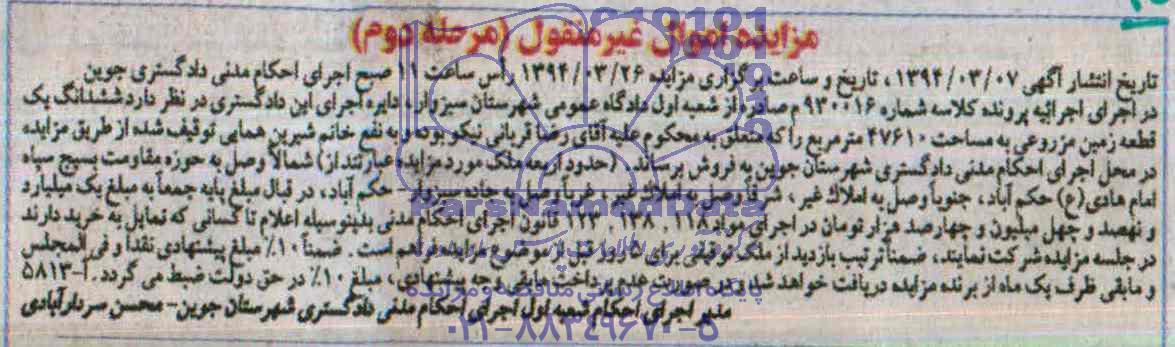 مزایده اموال غیرمنقول (مرحله دوم)
تاریخ انتشار آگهی ۱۳۹۴/۰۳/۰۷ ، تاریخ و ساعت برگزاری مزایده ۱۳۹۴/۰۳/۲۶ رأس ساعت ۱۱ صبح اجرای احکام مدنی دادگستری جوین
در اجرای اجرائیه پرونده کلاسه شماره ۹۳۰۰۱۶ م صادره از شعبه اول دادگاه عمومی شهرستان سبزوار، دایره اجرای این دادگستری در نظر دارد ششدانگ یک
قطعه زمین مزروعی به مساحت ۴۷۶۱۰ مترمربع را که متعلق به محکوم علیه آقای رضا قربانی نیکو بوده و به نفع خانم شیرین همایی توقیف شده از طریق مزایده
در محل اجرای احکام مدنی دادگستری شهرستان جوین به فروش برساند. (حدود اربعه ملک مورد مزایده عبارتند از) شمالاً وصل به حوزه مقاومت بسیج سپاه
امام هادی(ع) حکم آباد، جنوباً وصل به املاک غیر، شرقاً وصل به املاک غیر و غرباً وصل به جاده سبزوار - حکم آباد، در قبال مبلغ پایه جمعاً به مبلغ یک میلیارد
و نهصد و چهل میلیون و چهارصد هزار تومان در اجرای مواد ۱۳۸، ۱۴۳ قانون اجرای احکام مدنی بدینوسیله اعلام تا کسانی که تمایل به خرید دارند
در جلسه مزایده شرکت نمایند، ضمناً ترتیب بازدید از ملک توقیفی برای ۵ روز قبل از موضوع مزایده فراهم است. ضمناً ۱۰٪ مبلغ پیشنهادی نقداً و فی المجلس
و مابقی ظرف یک ماه از برنده مزایده دریافت خواهد شد و در صورت عدم پرداخت مابقی وجه پیشنهادی، مبلغ ۱۰٪ در حق دولت ضبط می گردد. آ-۵۸۱۳
مدیر اجرای احکام شعبه اول اجرای احکام مدنی دادگستری شهرستان جوین- محسن سردارآبادی
ParsNamadData
پایگاه اطلاع رسانی مناقصه و مزایده
۰۲۱-۸۸۳۴۹۶۷۰-۵